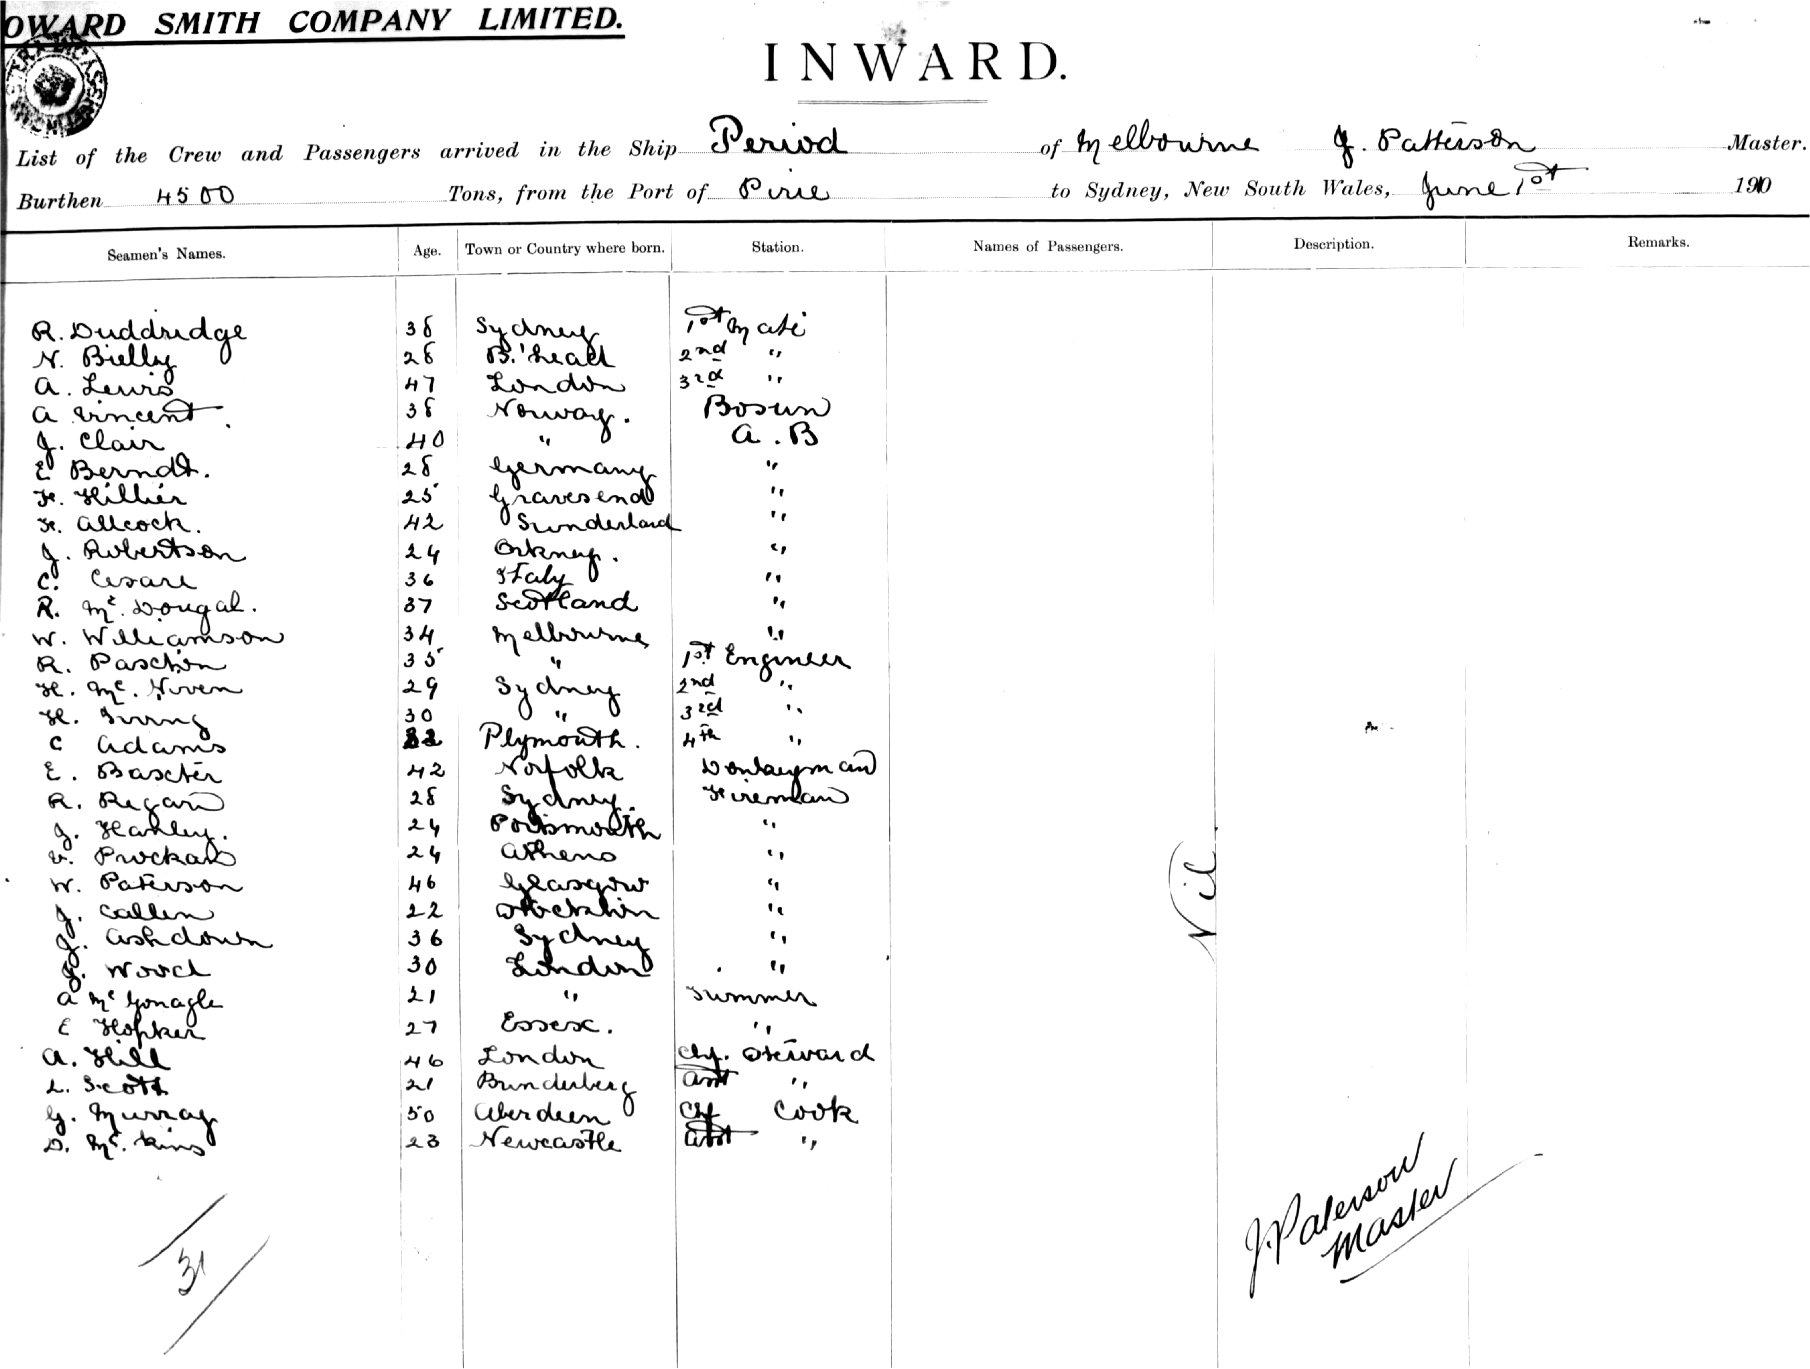 OWARD SMITH COMPANY LIMITED.
INWARD.
List of the Crew and Passengers arrived in the Ship Period of Melbourne J. Patterson Master.
Burthen 4500 Tons, from the Port of Pirie to Sydney, New South Wales, June 1st 1910
Seamen's Names. Age. Town or Country where born. Station. Names of Passengers. Description. Remarks.
R. Duddridge 38 Sydney 1st Mate
N. Bielby 28 B.'head 2nd "
A. Lewis 47 London 3rd "
A Vincent 38 Norway. Bosun
J. Clair 40 " A.B
E Berndt. 28 Germany "
F. Hillier 25 Gravesend "
F. Allcock. 42 Sunderland "
J. Robertson 24 Orkney. "
C. Cesare 36 Italy "
R. Mc. Dougal. 37 Scotland "
W. Williamson 34 Melbourne "
R. 35 " 1st Engineer
H. Mc. Niven 29 Sydney 2nd "
H. Irving 30 " 3rd "
C Adams Plymouth. 4th "
E. Baxter 42 Norfolk Donkeyman
R. Regan 28 Sydney. Fireman
J. Hanley. 24 Portsmouth "
V. 24 Athens "
W. Paterson 46 Glasgow "
J. Callen 22 Stockton "
J. Ashdown 36 Sydney "
J. Wood 30 London "
A Mc Gonagle 21 " Trimmer
E Hopker 27 Essex. "
A. Hill 46 London Chf. Steward
L. Scott 21 Bunderberg Asst "
G. Murray 50 Aberdeen Chf Cook
D. Mc. 23 Newcastle Asst "
Nil
31
J. Paterson
Master